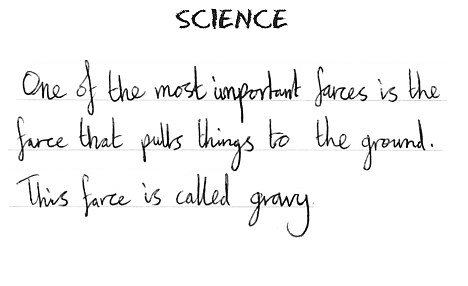 SCIENCE
One of the most important farces is the
farce that pulls things to the ground.
This farce is called gravy